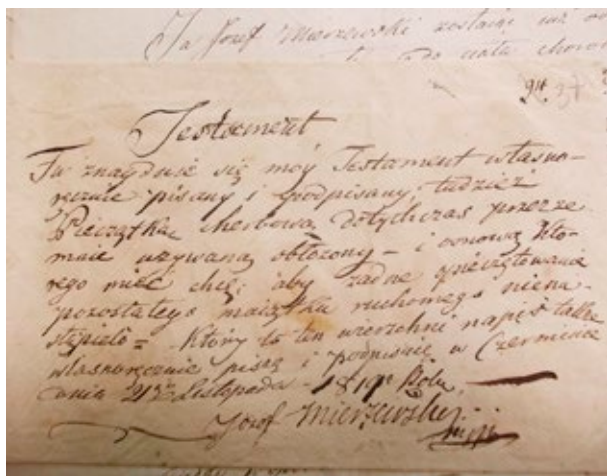 Ja Józef Mierzewski zostaiąc iuż
ciała choro
94. 37
Testament
Tu znayduie się móy Testament własno-
ręcznie pisany i podpisany, tudzież
Pieczątką cherbową dotychczas przeze
mnie używaną obłożony - i
rego mieć chcę, aby żadne pieczętowanie
pozostałego maiątku ruchomego niena-
stąpieło = Który to ten wierzchni napis także
własnoręcznie piszę i podpisuię w Czerminie
dnia 21go Listopada - 1819 Roku
Józef Mierzewski
mpp